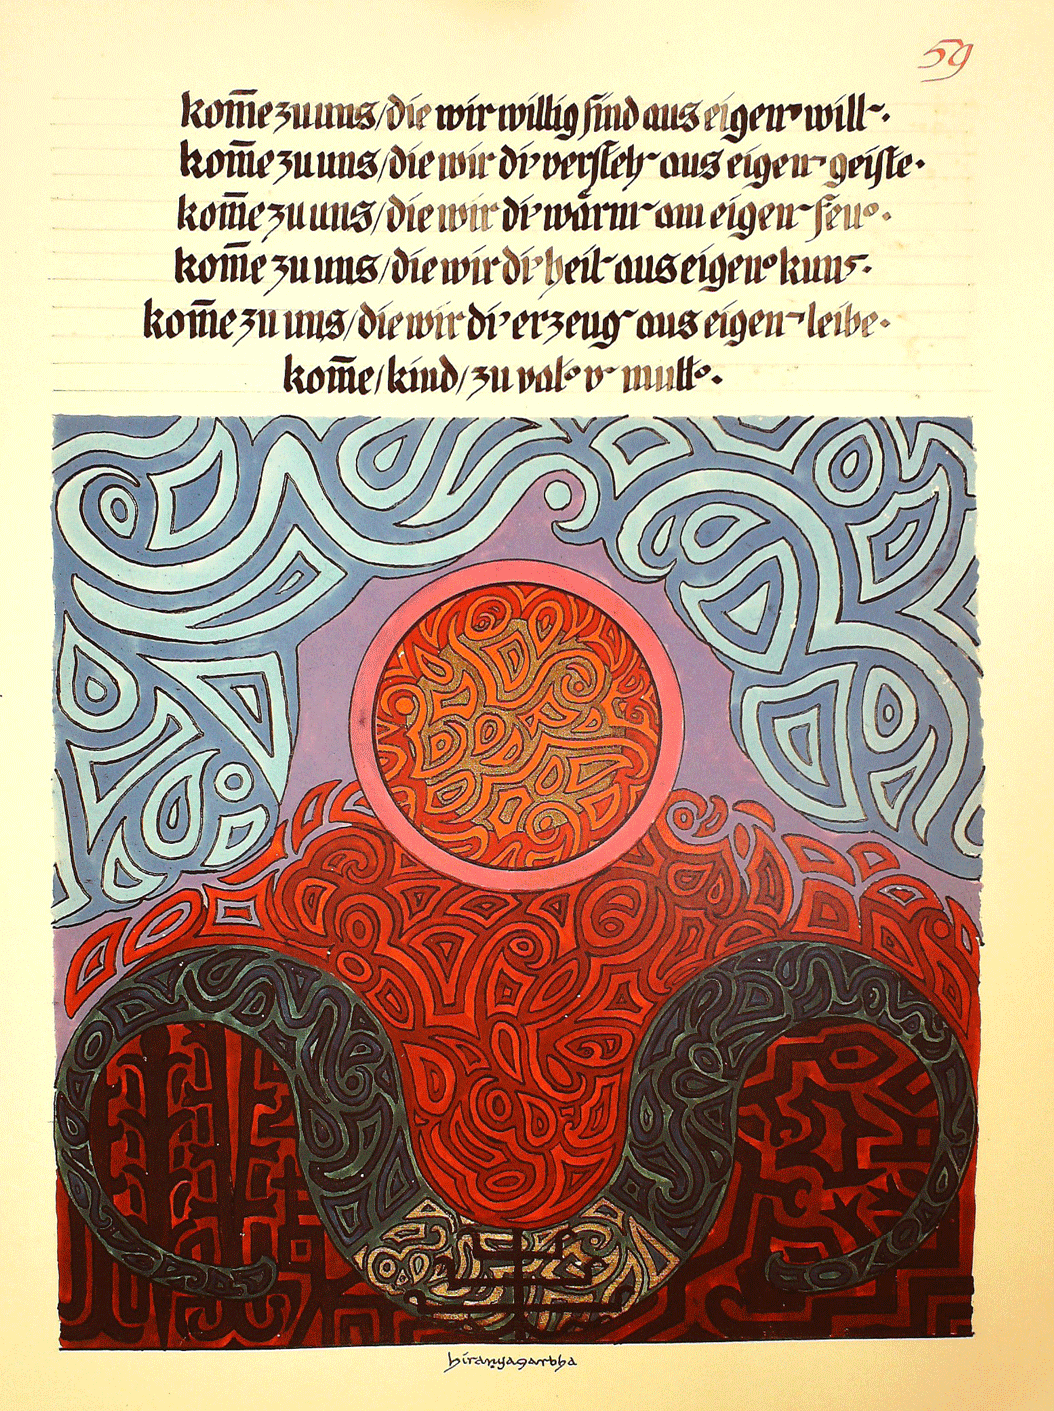 59
kom̄e zu uns/die wir willig sind aus eigen' will~.
kom̄e zu uns/die wir di' versteh~ aus eigen~ geiste.
kom̄e zu uns/die wir di' wärm~ am eigen~ feu°.
kom̄e zu uns/die wir di' heil~ aus eigen° kunst.
kom̄e zu uns/die wir di' erzeug~ aus eigen~ leibe.
kom̄e/kind/zu vat° v~ mutt°.
hiraṇyagarbha